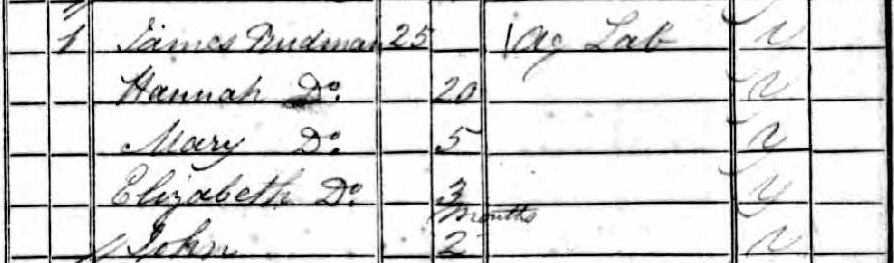 1 James Rudman 25 Ag Lab y
Hannah Do. 20 y
Mary Do. 5 y
Elizabeth Do. 3 y
months
John 2 y